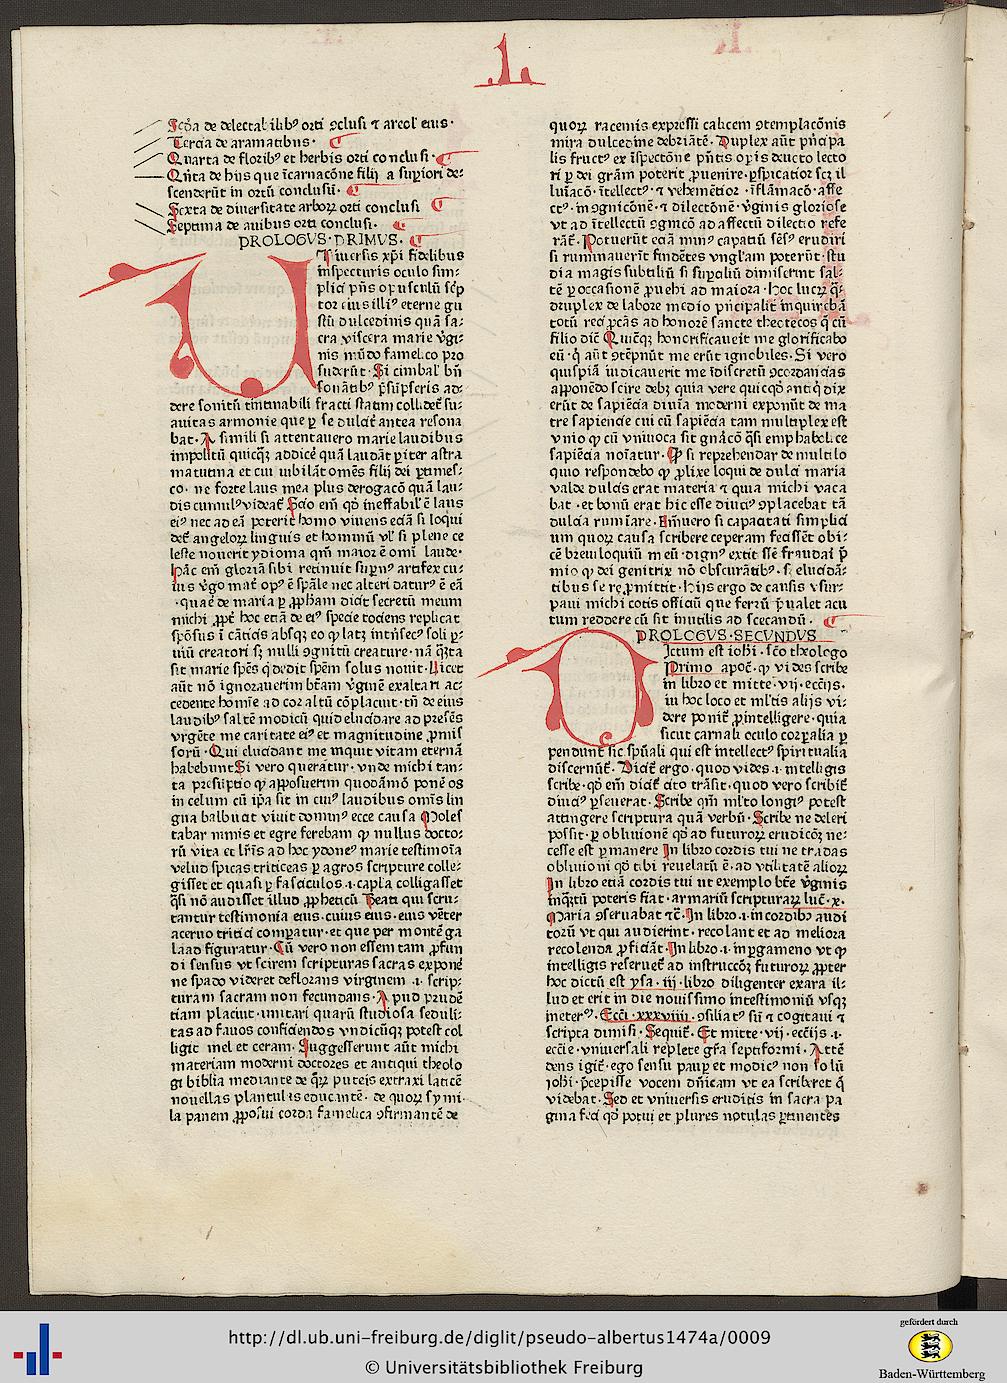 L
Scd̃a de delectabilibꝰ orti ꝯclusi ⁊ arcol̉ eius·
Tercia de aramatibus·
Quarta de floribꝰ et herbis orti conclusi·
Qñta de hijs que ĩcarnacõne filij a suꝑiori de⸗
scenderũt in ortũ conclusũ·
Sexta de diuersitate arborꝝ orti conclusi
Septima de auibus orti conclusi·
PROLOGVS·PRIMVS·
Uniuersis xp̃i fidelibus
inspecturis oculo sim⸗
plici p̃ns opusculũ scp̃
tor eius illiꝰ eterne gu
stũ dulcedinis quã sa⸗
cra viscera marie v̉gi⸗
nis mũdo famelico pro
fuderũt·Si cimbal̉ bñ
sonãtibꝰ p̃sũpseris ad⸗
dere sonitũ tintinabili fracti statim collidet̃ su⸗
auitas armonie que ꝑ se dulcit̃ antea resona
bat·A simili si attentauero marie laudibus
impolitũ quicqꝫ addicẽ quã laudãt ꝑiter astra
matutina et cui iubilãt omẽs filij dei ꝑtimes⸗
co· ne forte laus mea plus derogacõ quã lau⸗
dis cumulꝰ videat̃ Scio em̃ qd̃ ineffabil̉ ẽ laus
eiꝰ nec ad eã poterit homo viuens eciã si loqui
det̃ angelorꝝ linguis et hominũ vl̉ si plene ce
leste nouerit ydioma qm̃ maior ẽ om̃i laude·
hãc em̃ gloriã sibi retinuit sup̃nꝰ artifex cu⸗
ius v̉go mat̃ opꝰ ẽ sp̃ale nec alteri daturꝰ ẽ eã
·quare de maria ꝑ ꝓph̃am dicit secretũ meum
michi ꝓpt̃ hoc etiã de eiꝰ specie tociens replicat
spõsus ĩ cãticis absqꝫ eo ꝙ latꝫ intⁱsecꝰ soli ꝑ⸗
uiũ creatori sꝫ nulli ꝯgnitũ creature· nã qꝫta
sit marie spẽs q̃ dedit spẽm solus nouit·Licet
aũt nõ ignorauerim bt̃am v̉ginẽ exaltari ac⸗
cedente homĩe ad cor altũ cõplacuit·tñ de eius
laudibꝰ saltẽ modicũ quid elucidare ad presẽs
vrgẽte me caritate eiꝰ et magnitudine ꝓmis
sorũ·Qui elucidant me inquit vitam eternã
habebunt Si vero querãtur·vnde michi tan⸗
ta presũptio ꝙ apposuerim quodãmõ ponẽ os
in celum cũ ip̃a sit in cuiꝰ laudibus om̃s lin
gua balbuciat viuit dominꝰ ecce causa Moles
tabar nimis et egre ferebam ꝙ nullus docto⸗
rũ vita et lr̃is ad hoc ydoneꝰ marie testimoĩa
velud spicas triticeas ꝑ agros scripture colle⸗
gisset et quasi ꝑ fasciculos ·i· capl̃a colligasset
q̃si nõ audisset illud ꝓpheticũ Beati qui scru⸗
tantur testimonia eius·cuius eius·eius vẽter
aceruo tritici comꝑatur·et que per montẽ ga
laad figuratur·Cũ vero non essem tam ꝓfun
di sensus vt scirem scripturas sacras exponẽ
ne spado videret̃ deflorans virginem ·i· scrip⸗
turam sacram non fecundans·Apud prudẽ
tiam placuit·imitari quarũ studiosa seduli⸗
tas ad fauos conficiendos vndicũqꝫ potest col
ligit mel et ceram. Suggesserunt aũt michi
materiam moderni doctores et antiqui theolo
gi biblia mediante de qꝝ puteis extraxi laticẽ
nouellas plantulas educantẽ· de quorꝝ symi⸗
la panem ꝓposui corda famelica ꝯfirmantẽ de
quorꝝ racemis expressi calicem ꝯtemplacõnis
mira dulcedine debriãtẽ·Duplex aũt pñcipa
lis fructꝰ ex ĩspectõne pñtis oꝑis deuoto lecto
ri ꝑ dei grãm poterit ꝓuenire·ꝑspicatior scꝫ il
luĩacõ·ĩtellectꝰ ⁊ vehemẽtior·ĩflãmacõ·affe
ctꝰ·ĩn ꝯgnicõnẽ ⁊ dilectõnẽ·v̉ginis gloriose
vt ad ĩtellectũ ꝯgnicõ ad affectũ dilectio refe
rãt̃·Potuerũt eciã minꝰ capatiũ sẽsꝰ erudiri
si ruminauerĩt findẽtes vngl̃am poterũt·stu
dia magis subtiliũ si sup̃aliũ dimiserĩt sal⸗
tẽ ꝑ occasionẽ ꝓuehi ad maiora·hoc lucrꝝ q̃⸗
druplex de labore medio pⁱncipalit̃ inquirebã
totũ reciꝓcãs ad honorẽ sancte theotecos q̃ cũ
filio dic̃ Quicũqꝫ honorificauerit me glorificabo
eũ·q̃ aũt ꝯtẽpnũt me erũt ignobiles·Si vero
quispiã iudicauerit me ĩdiscretũ ꝯcordancias
apponẽdo scire debꝫ quia vere quicqd̃ antiq̃ dix
erũt de sapiẽcia diuĩa moderni exponũt de ma
tre sapiencie cui cũ sapiẽcia tam multiplex est
vnio ꝙ cũ vniuoca sit gnãcõ q̃si emphabolice
sapiẽcia noĩatur·Ꝙ si reprehendar de multilo
quio respondebo ꝙ ꝓlixe loqui de dulci maria
valde dulcis erat materia ⁊ quia michi vaca
bat·et bonũ erat hic esse diutiꝰ ꝯplacebat tã
dulcia rumĩare·Eñiuero si capacitati simplici
um quorꝝ causa scribere ceperam fecissẽt obi⸗
cẽ breuiloquiũ meũ·dignꝰ extitissẽ fraudai p̃
mio ꝙ dei genitrix nõ obscurãtibꝰ·sꝫ elucidã⸗
tibus se reꝓmittit·hijs ergo de causis vsur⸗
paui michi cotis officiũ que ferrũ p̃ualet acu
tum reddere cũ sit inutilis ad scecandũ·
PROLOGVS·SECVNDVS
Dictum est iohĩ·sc̃o theologo
Primo apoc̃·ꝙ vides scribe
in libro et mitte·vij·eccĩjs·
in hoc loco et ml̃tis alijs vi⸗
dere ponit̃ ꝓ intelligere·quia
sicut carnali oculo corꝑalia ꝑ
pendunt̃ sic sp̃uali qui est intellectꝰ spiritualia
discernũt̃·Dicit̃ ergo·quod vides·i·intelligis
scribe·qd̃ em̃ dicit̃ cito trãsit·quod vero scribit̃
diuciꝰ ꝑseuerat·Scribe qm̃ ml̃to longiꝰ potest
attingere scriptura quã verbũ·Scribe ne deleri
possit·ꝑ obliuionẽ qd̃ ad futurorꝝ erudicõꝫ ne⸗
cesse est ꝑmanere In libro cordis tui ne tradas
obliuioni qd̃ tibi reuelatũ ẽ·ad vtilitatẽ aliorꝝ
In libro etiã cordis tui ut exemplo bt̃e v̉ginis
inqꝫtũ poteris fiat·armariũ scripturarꝝ luc̃·x·
Maria ꝯseruabat ⁊c̃·In libro·i·in cordibꝰ audi
torũ vt qui audierint·recolant et ad meliora
recolenda ꝓficiãt·In libro·i·in ꝑgameno vt ꝙ
intelligis reseruet̃ ad instruccõꝫ futurorꝝ ꝓpter
hoc dictũ est ysa·iij·libro diligenter exara il⸗
lud et erit in die nouissimo intestimoniũ vsqꝫ
ineterꝰ·Eccĩ·xxxviiij·ꝯsiliatꝰ sũ ⁊ cogitaui ⁊
scripta dimisi·Sequit̃·Et mitte·vij·eccĩjs·i·
eccĩe·vniuersali replete gr̃a septiformi·Attẽ
dens igit̃·ego sensu pauꝑ et modicꝰ non solũ
iohĩ·p̃cepisse vocem dñicam vt ea scriberet q̃
videbat·Sed et vniuersis eruditis in sacra pa
gina feci qd̃ potui et plures notulas ꝑtinentes
http://dl.ub.uni-freiburg.de/diglit/pseudo-albertus1474a/0009
© Universitätsbibliothek Freiburg
gefördert durch
Baden-Württemberg